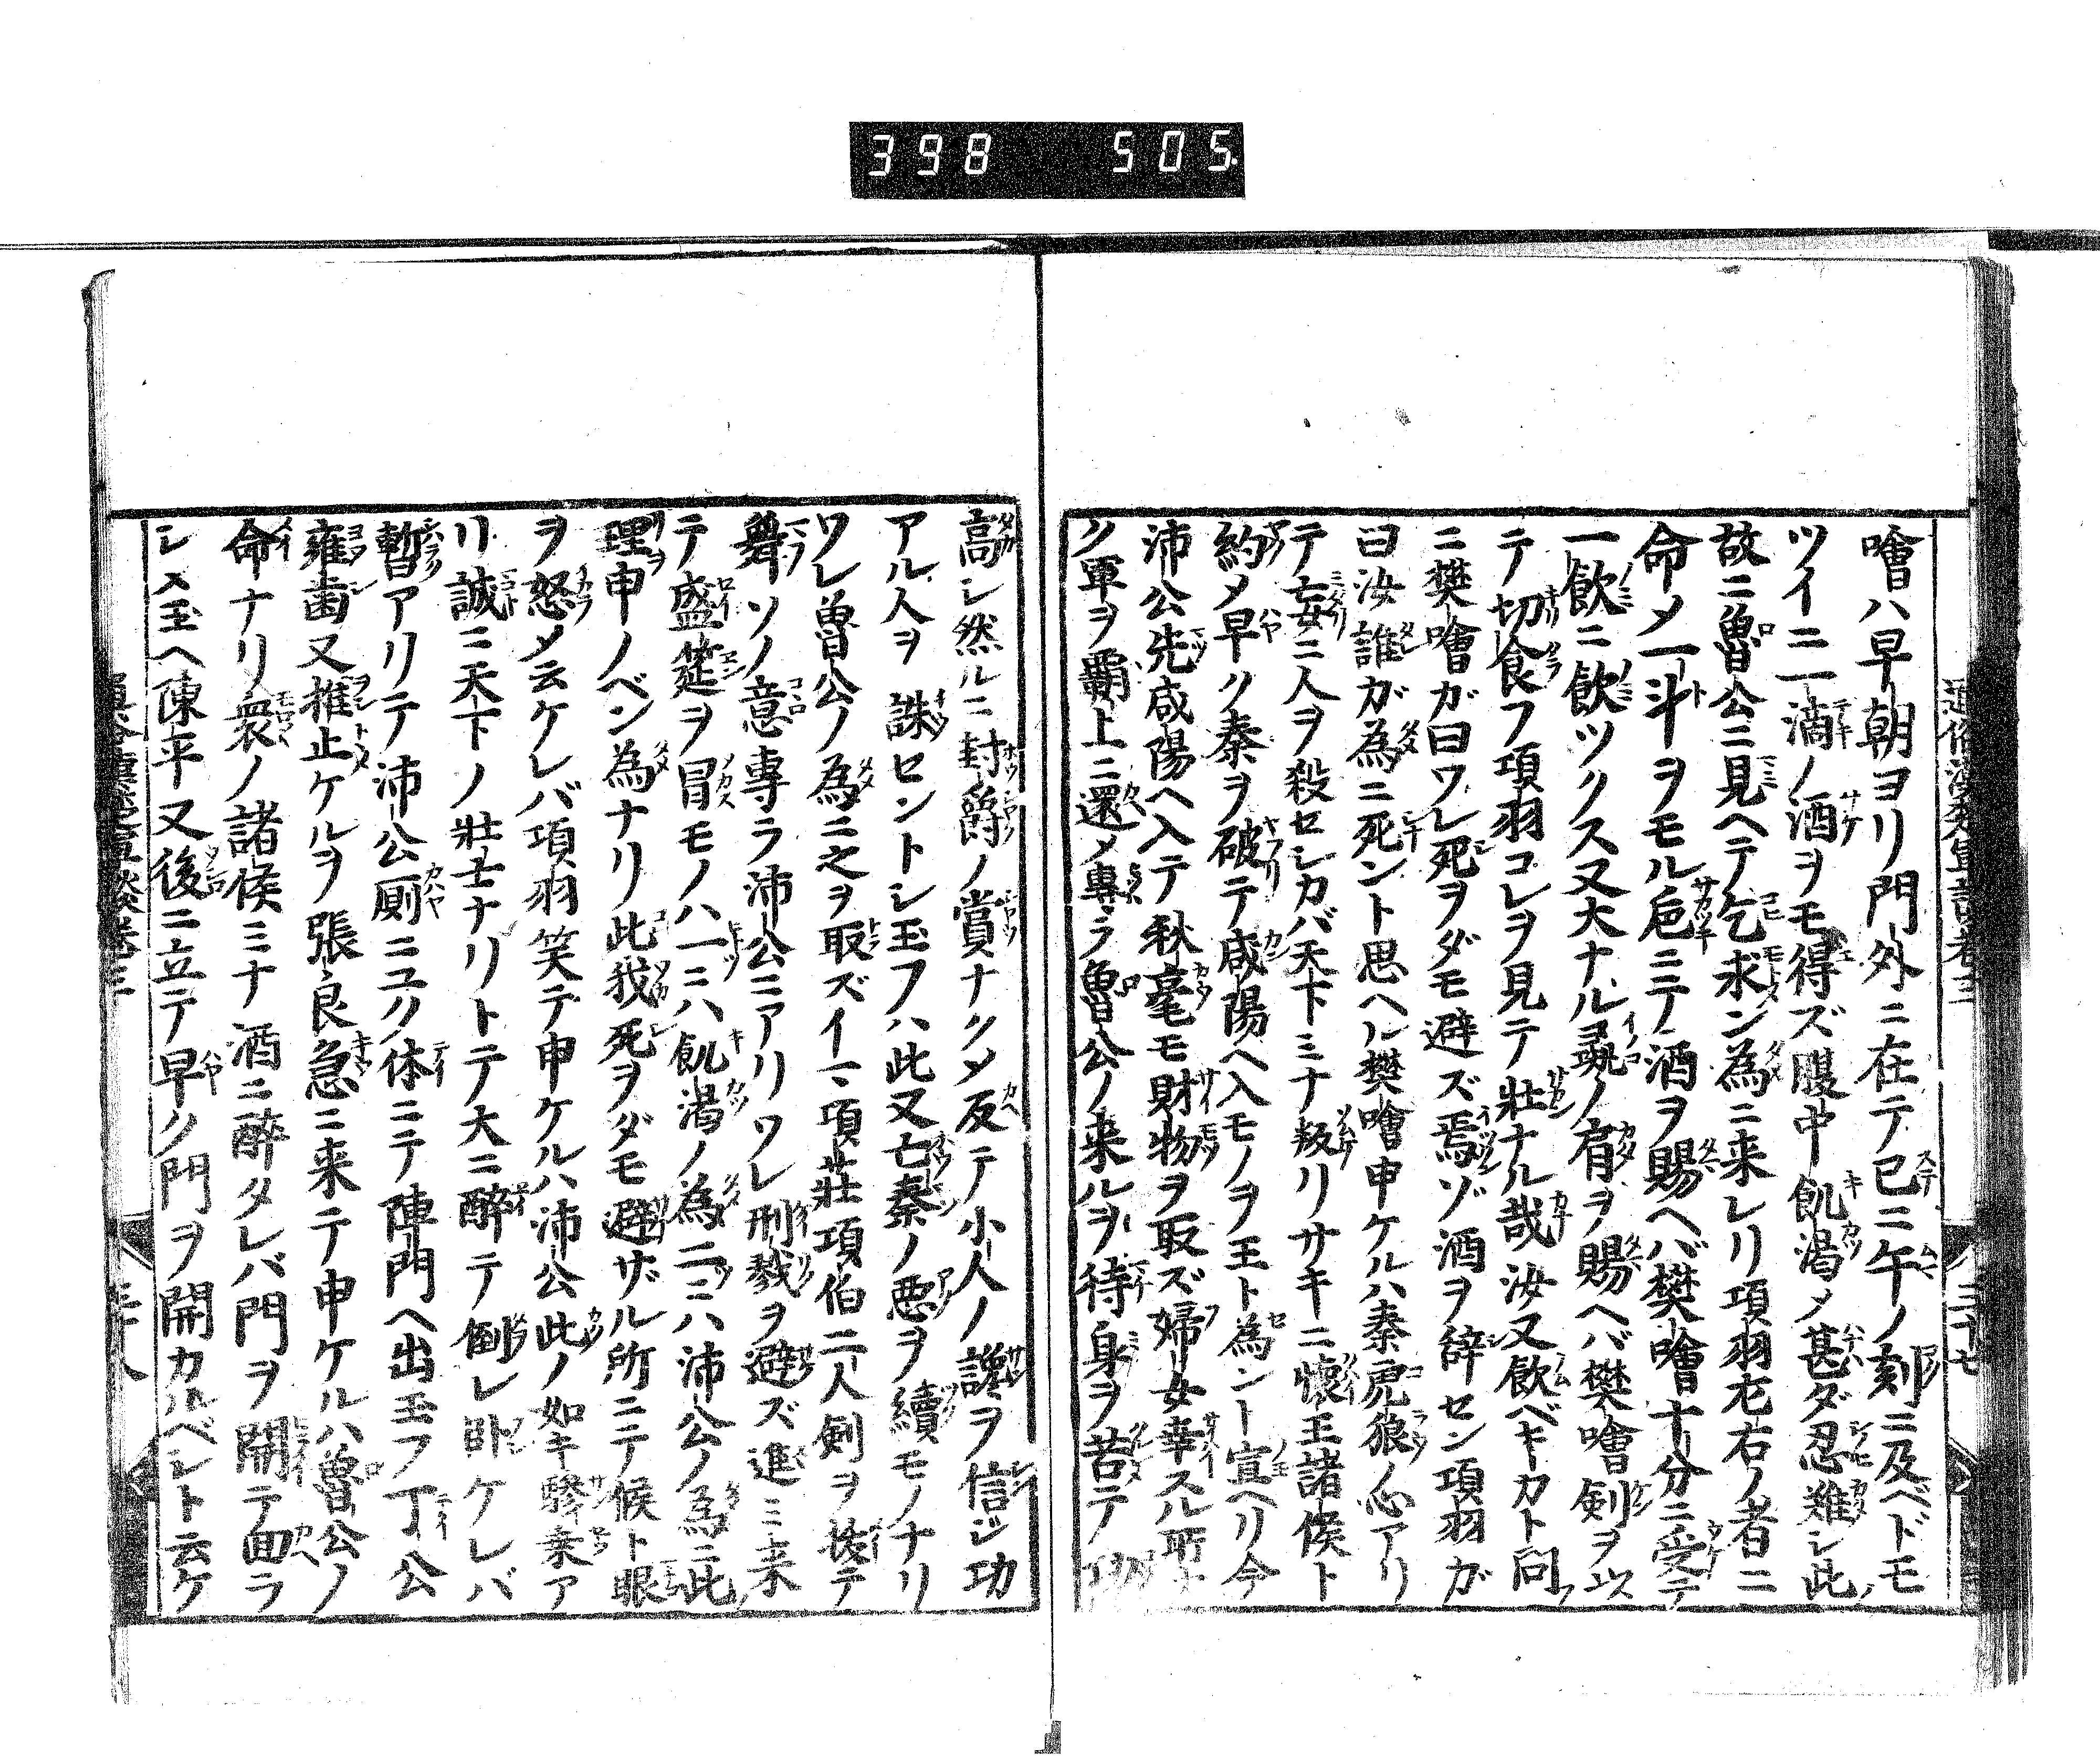 398 505.
噲ハ早朝ヨリ門外ニ在テ已ニ午ノ刻ニ及ベドモ
ツイニ一滴ノ酒ヲモ得ズ腹中飢渇メ甚ダ忍難シ此
故ニ魯公ニ見ヘテ乞求ン為ニ来レリ項羽左右ノ者ニ
命メ一斗ヲモル巵ニテ酒ヲ賜ヘバ樊噲十分ニ受テ
一飲ニ飲ツクス又大ナル彘ノ肩ヲ賜ヘバ樊噲剣ヲ以
テ切食フ項羽コレヲ見テ壮ナル哉汝又飲ベキカト問
ニ樊噲ガ曰ワレ死ヲダモ避ズ焉ゾ酒ヲ辞セン項羽ガ
曰汝誰ガ為ニ死ント思ヘル樊噲申ケルハ秦虎狼ノ心アリ
テ妄ニ人ヲ殺セシカバ天下ミナ叛リサキニ懐王諸侯ト
約メ早ク秦ヲ破テ咸陽ヘ入モノヲ王ト為ント宣ヘリ今
沛公先咸陽ヘ入テ秋毫モ財物ヲ取ズ婦女幸スル所ナ
ク軍ヲ覇上ニ還メ専ラ魯公ノ来ルヲ待身ヲ苦テ功
高シ然ルニ封爵ノ賞ナクメ反テ小人ノ讒ヲ信ジ功
アル人ヲ誅セントシ玉フハ此又亡秦ノ悪ヲ續モノナリ
ワレ魯公ノ為ニ之ヲ取ズイマ項荘項伯二人剣ヲ抜テ
舞ソノ意専ラ沛公ニアリワレ刑戮ヲ避ズ進ミ来
テ盛筵ヲ冒モノハ一ニハ飢渇ノ為二ニハ沛公ノ為ニ此
理申ノベン為ナリ此我死ヲダモ避ザル所ニテ候ト眼
ヲ怒メ云ケレバ項羽笑テ申ケルハ沛公此ノ如キ驂乗ア
リ誠ニ天下ノ壮士ナリトテ大ニ醉テ倒レ臥ケレバ
暫アリテ沛公厠ニユク体ニテ陣門ヘ出玉フ丁公
雍歯又推止ケルヲ張良急ニ来テ申ケルハ魯公ノ
命ナリ衆ノ諸侯ミナ酒ニ醉タレバ門ヲ開テ回ラ
シメ玉ヘ陳平又後ニ立テ早ク門ヲ開カルベシト云ケ